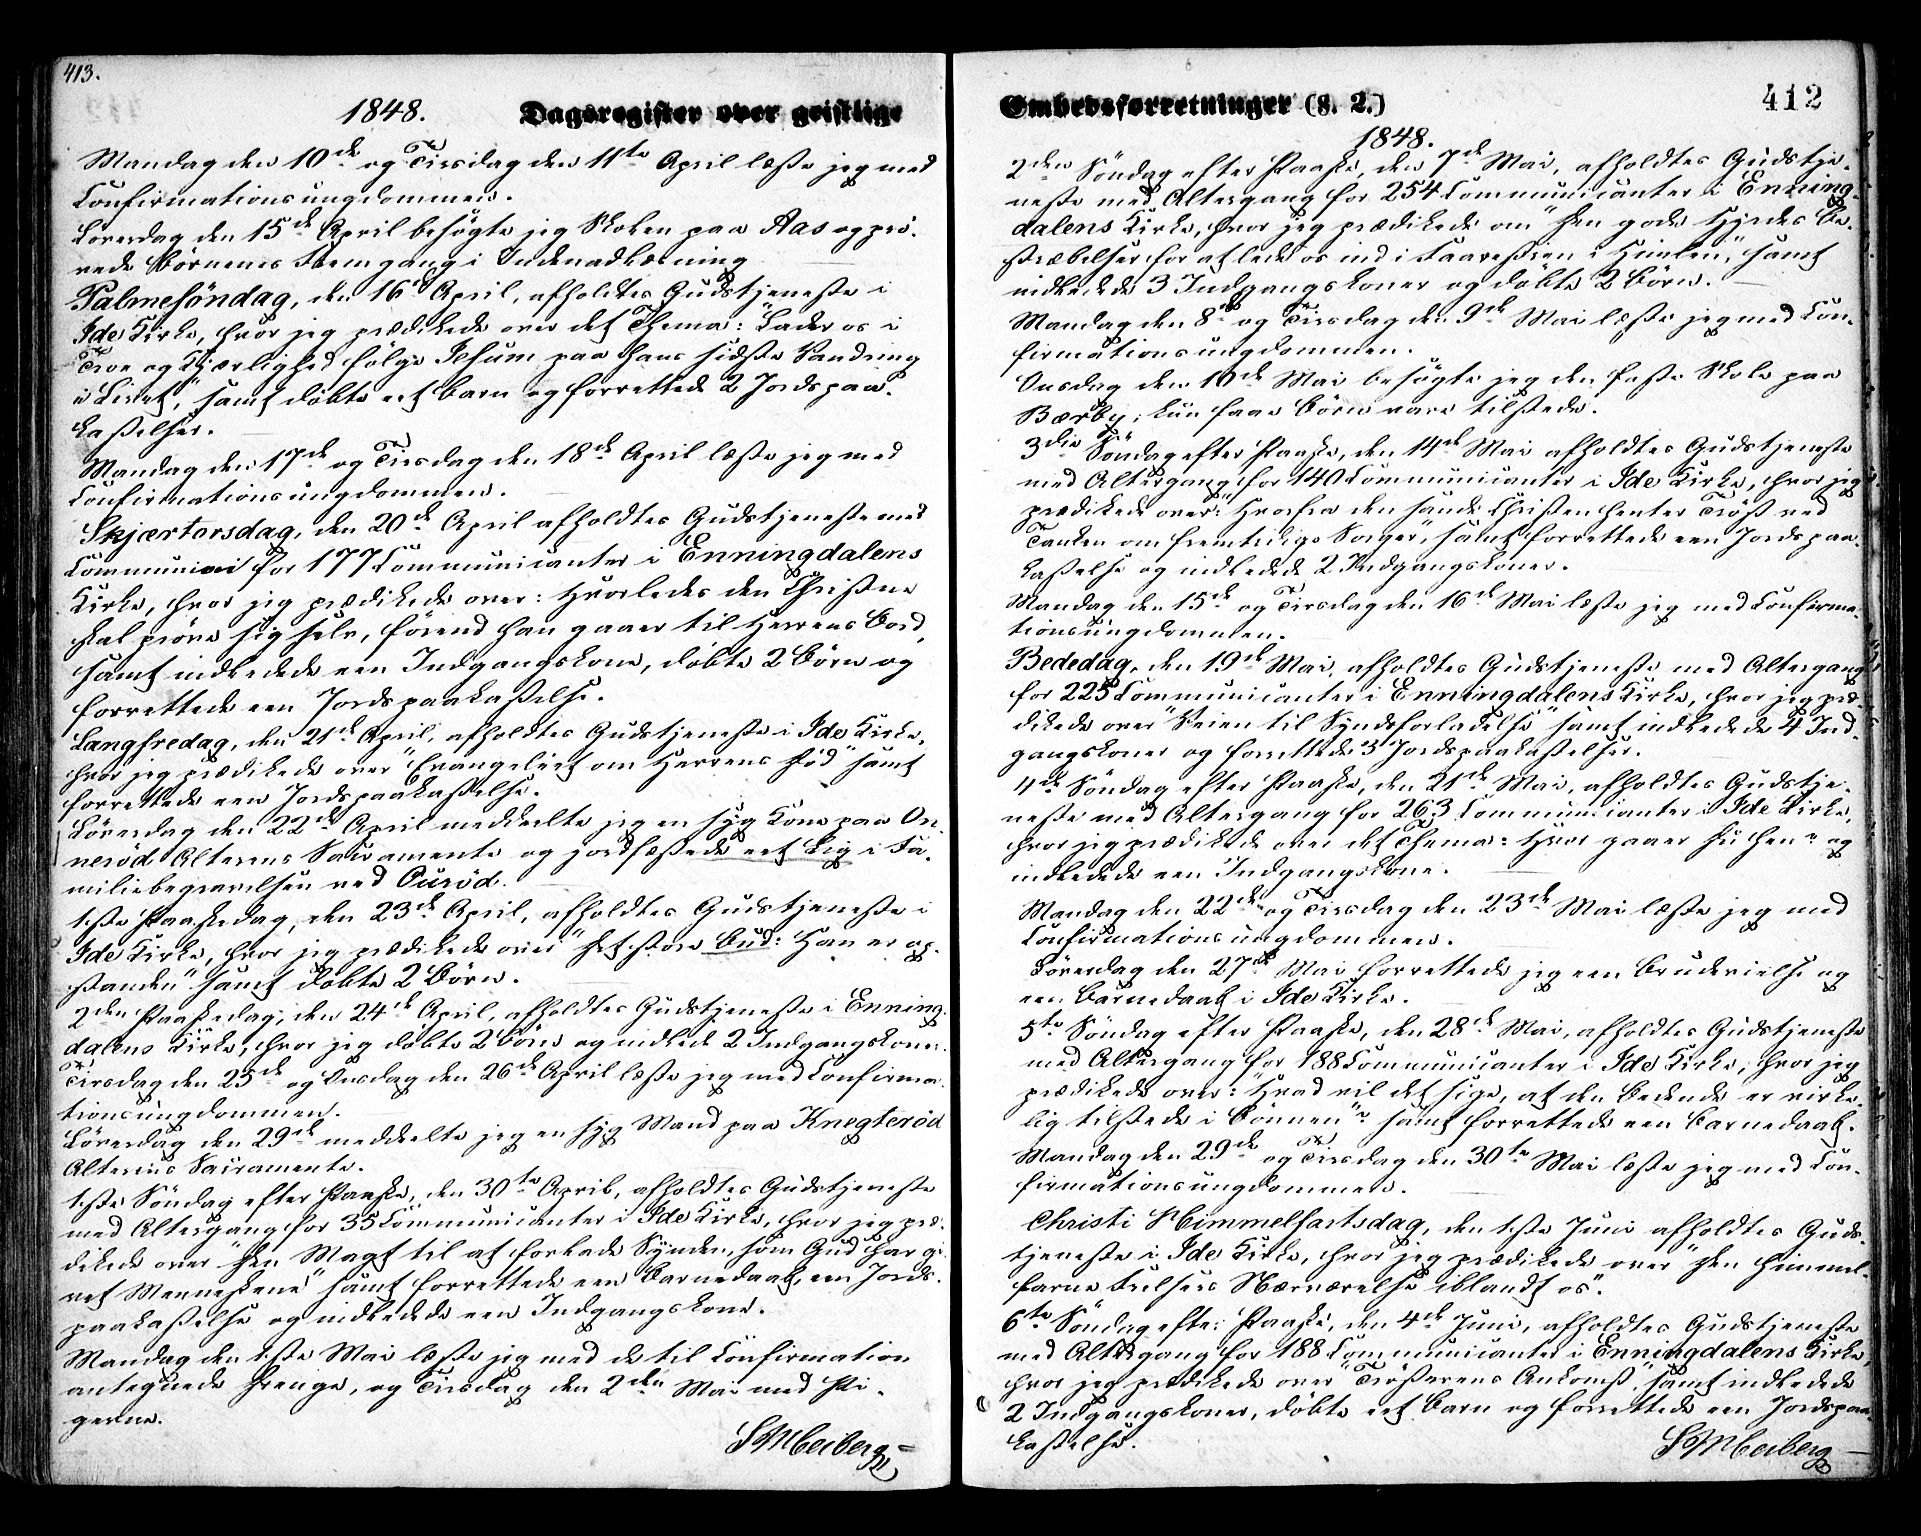 413.
1848. Dagsregister over geistlige
Mandag den 10de og Tirsdag den 11te April læste jeg med
Confirmationsungdommen.
Löverdag den 15de April besögte jeg Skolen paa Aas og prö-
vede Börnenes Fremgang i Indenadlæsning
Palmesöndag, den 16de April, afholdtes Gudstjeneste i
Ide Kirke, hvor jeg prædikede over det Thema: "Lader os i
Troe og Kjærlighed fölge Jesum paa hans sidste Vandring
i Livet", samt döbte eet Barn og forrettede 2 Jordspaa-
kastelser.
Mandag den 17de og Tirsdag den 18de April læste jeg med
Confirmationsungdommen.
Skjærtorsdag, den 20de April afholdtes Gudstjeneste med
Communion for 177 Communicanter i Enningdalens
Kirke, hvor jeg prædikede over: Hvorledes den Christne
skal pröve sig selv, förend han gaaer til Herrens Bord,
samt indledede een Indgangskone, döbte 2 Börn og
forrettede een Jordspaakastelse.
Langfredag, den 21de April, afholdtes Gudstjeneste i Ide Kirke,
hvor jeg prædikede over "Evangeliet om Herrens Död" samt
forrettede een Jordspaakastelse.
Löverdag den 22de April meddeelte jeg en syg Kone paa On-
neröd Alterens Sacramente og jordfæstede eet Lig i Fa-
miliebegravelsen ved Ouröd.
1ste Paaskedag, den 23de April, afholdtes Gudstjeneste i
Ide Kirke, hvor jeg prædikede over "Det store Bud: Han er op-
standen" samt döbte 2 Börn.
2den Paaskedag, den 24de April, afholdtes Gudstjeneste i Enning-
dalens Kirke, hvor jeg döbte 2 Börn og indlede 2 Indgangskoner.
Tirsdag den 25de og Onsdag den 26de April læste jeg med Confirma-
tionsungdommen.
Löverdag den 29de meddeelte jeg en syg Mand paa Knegteröd
Alterens Sacramente.
1ste Söndag efter Paaske, den 30te April, afholdtes Gudstjeneste
med Altergang for 35 Communicanter i Ide Kirke, hvor jeg præ-
dikede over "Den Magt til at forlade Synden, som Gud har gi-
vet Menneskene" samt forrettede een Barnedaab, een Jords-
paakastelse og indledede een Indgangskone.
Mandag den 1ste Mai læste jeg med de til Confirmation
antegnede Drenge, og Tirsdag den 2den Mai med Pi-
gerne.
SMHeiberg
Embedsforretninger (S. 2.)
412
1848.
2den Söndag efter Paaske, den 7de Mai, afholdtes Gudstje-
neste med Altergang for 254 Communicanter i Enning-
dalens Kirke, hvor jeg prædikede om "Den gode Hyrdes Be-
stræbelser for at lede os ind i Faarestien i Himlen", samt
indledede 3 Indgangskoner og döbte 2 Börn.
Mandag den 8de og Tirsdag den 9de Mai læste jeg med Con-
firmationsungdommen.
Onsdag den 10de Mai besögte jeg den faste Skole paa
Bærby; kun faae Börn vare tilstede.
3die Söndag efter Paaske, den 14de Mai afholdtes Gudstjeneste
med Altergang for 140 Communicanter i Ide Kirke, hvor jeg
prædikede over: "Hvorfra den sande Christen henter Tröst ved
Tanken om fremtidige Sorger", samt forrettede een Jordspaa-
kastelse og indledede 2 Indgangskoner.
Mandag den 15de og Tirsdag den 16de Mai læste jeg med Confirma-
tionsungdommen.
Bededag, den 19de Mai, afholdtes Gudstjeneste med Altergang
for 225 Communicanter i Enningdalens Kirke, hvor jeg præ-
dikede over "Veien til Syndsforladelse" samt indledede 4 Ind-
gangskoner og forrettede 3 Jordspaakastelser.
4de Söndag efter Paaske, den 21de Mai, afholdtes Gudstje-
neste med Altergang for 263 Communicanter i Ide Kirke,
hvor jeg prædikede over det Thema: Hvor gaaer du hen? og
indledede een Indgangskone.
Mandag den 22de og Tirsdag den 23de Mai læste jeg med
Confirmationsungdommen.
Löverdag den 27de Mai forrettede jeg een Brudevielse og
een Barnedaab i Ide Kirke.
5te Söndag efter Paaske, den 28de Mai, afholdtes Gudstjeneste
med Altergang for 188 Communicanter i Ide Kirke, hvor jeg
prædikede over: Hvad vil det sige, at den Bedende er virke-
lig tilstede i Bönnen"? samt forrettede een Barnedaab.
Mandag den 29de og Tirsdag den 30te Mai læste jeg med Con-
firmationsungdommen.
Christi Himmelfartsdag, den 1ste Juni afholdtes Guds-
tjeneste i Ide Kirke, hvor jeg prædikede over "Den himmel-
farne Frelsers Nærværelse iblandt os".
6te Söndag efter Paaske, den 4de Juni, afholdtes Gudstjeneste
med Altergang for 188 Communicanter i Enningdalens Kirke,
hvor jeg prædikede over "Trösterens Ankomst", samt indledede
2 Indgangskoner, döbte eet Barn og forrettede een Jordspaa-
kastelse.
SMHeiberg